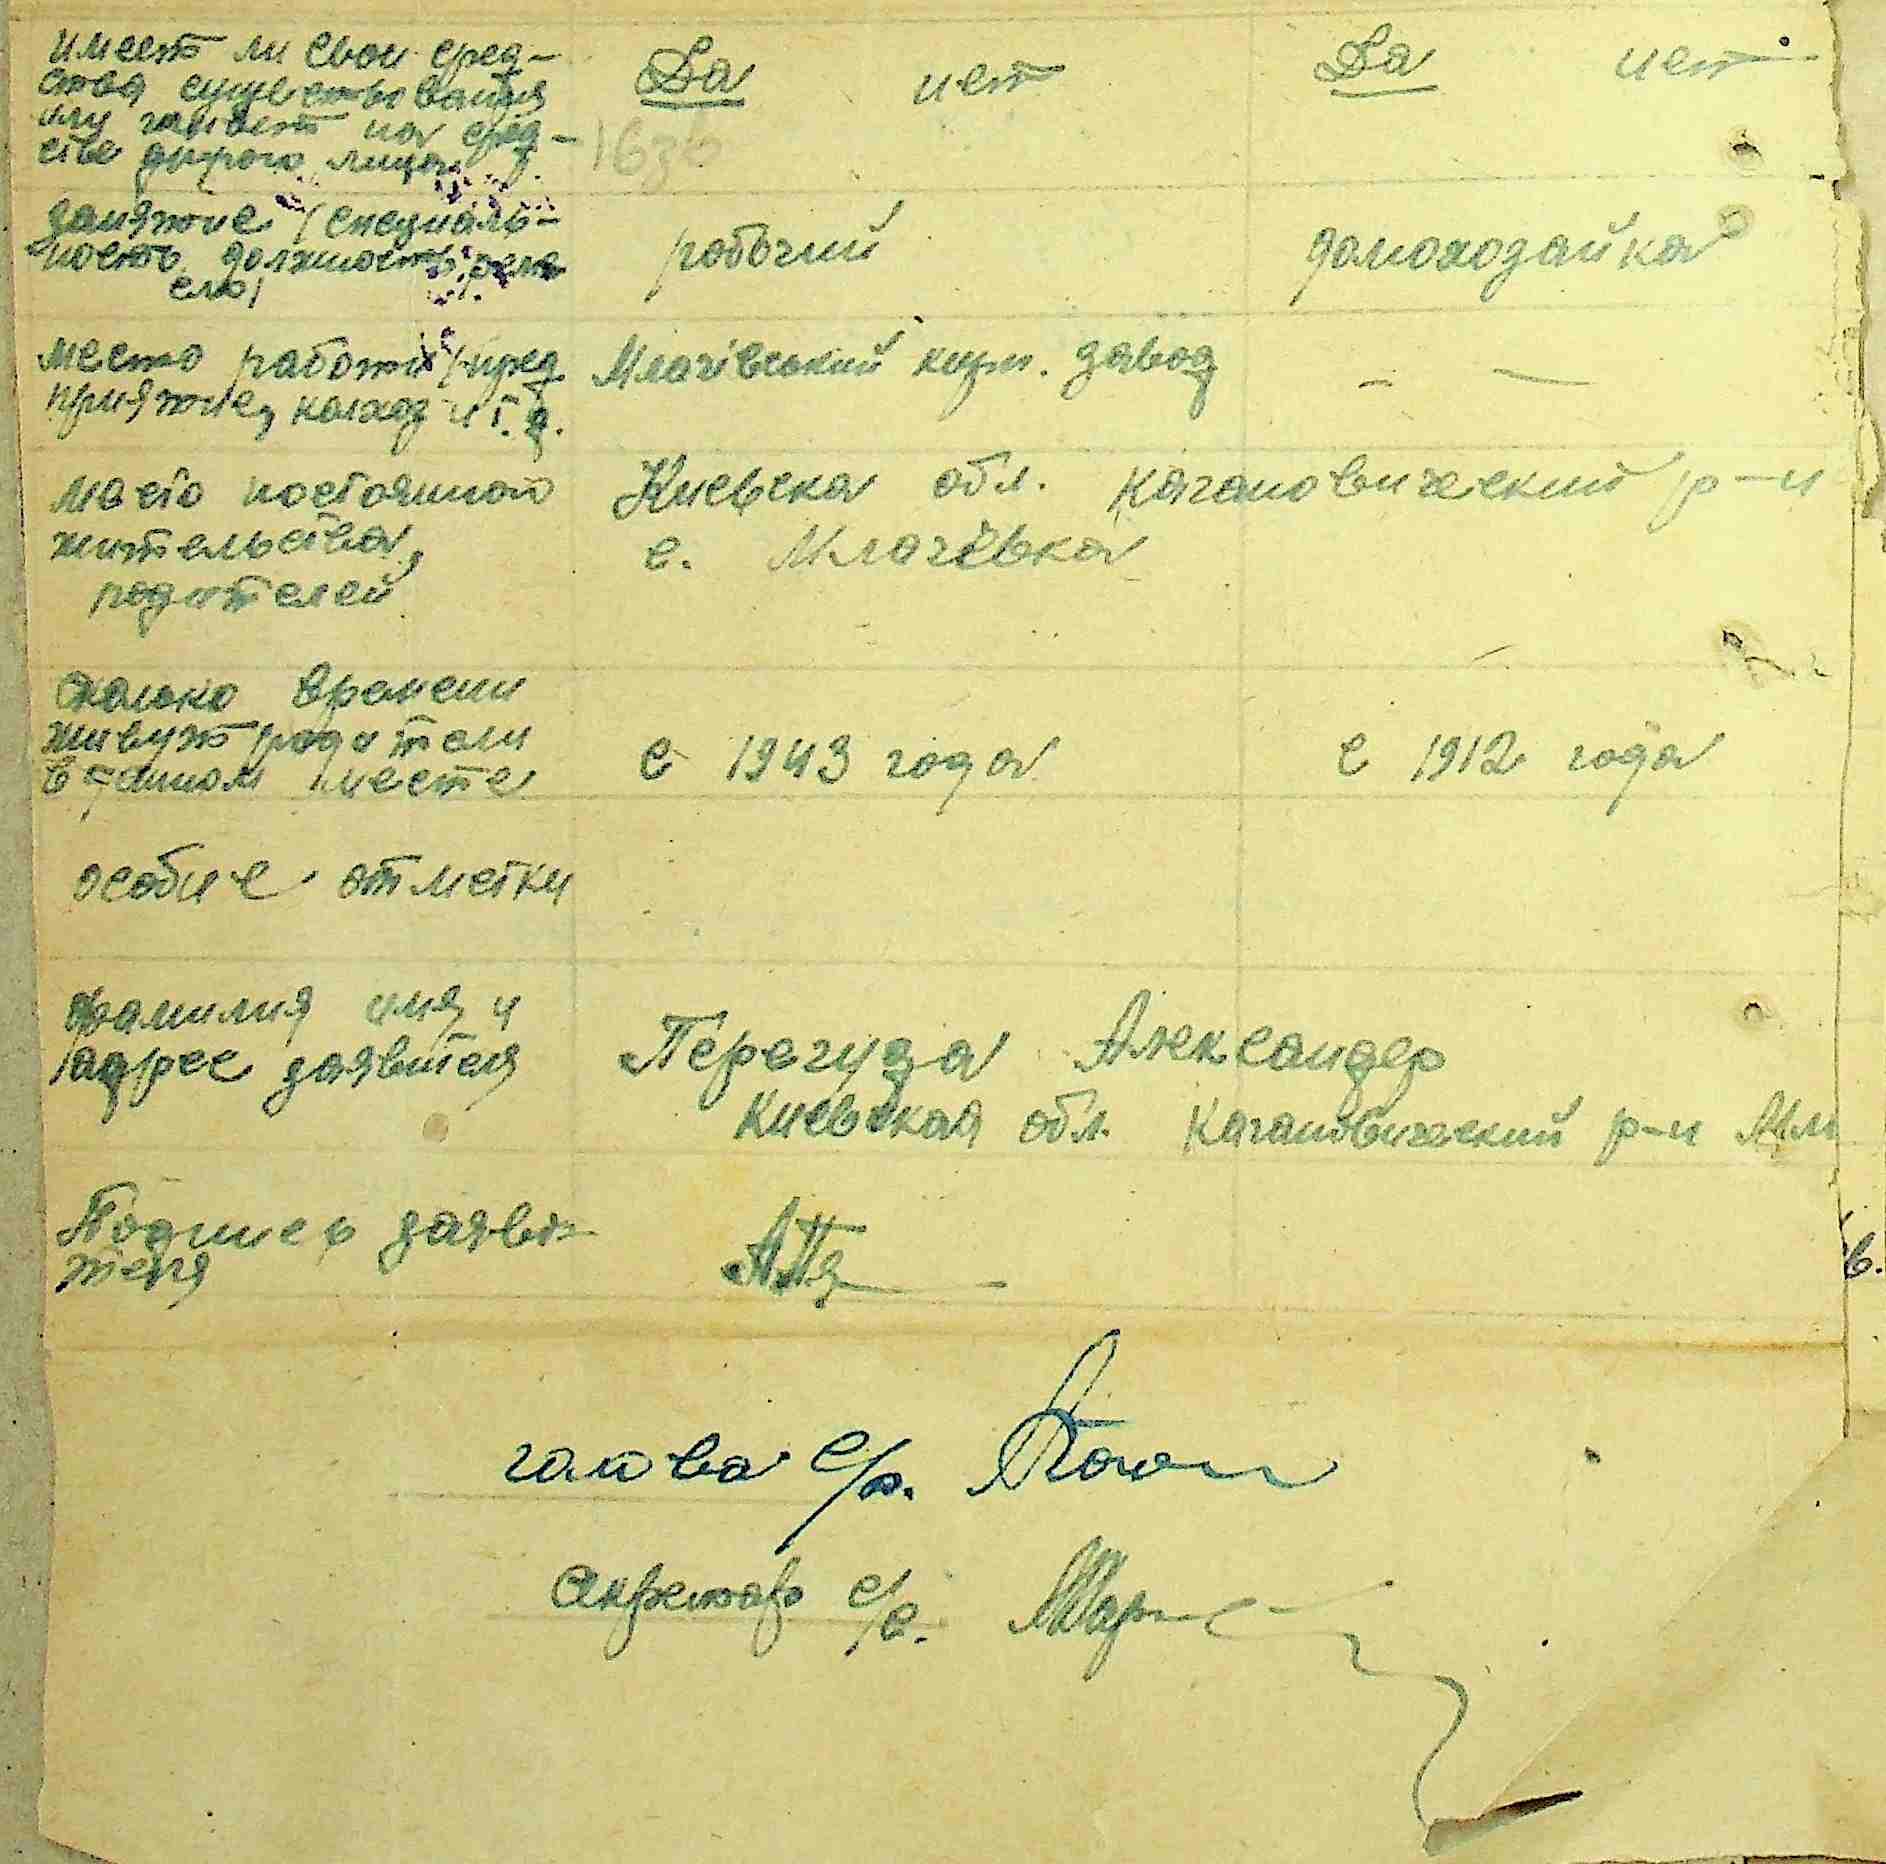 имеет ли свои сред-
ства существования
или                на сред-
стве другого лица
Да нет Да нет
163б
занятие / специаль-
ность должность реме
сло/
рабочий домохозайка
место работи / пред
приятие, колхоз и т. д.
Млачівський кирп. завод – —
место постоянного
жительства,
родителей
Киевска обл. Кагановический р-н
с. Млачівка
Сколько времени
живут родители
в данном месте
с 1943 года с 1912 года
особие отметки
Фамилия имя и
адрес заявителя
Перегуда Александер
Киевская обл. Кагановический р-н Мл
Подпись заяви-
теля
голова с/р.
Секретар с/с.